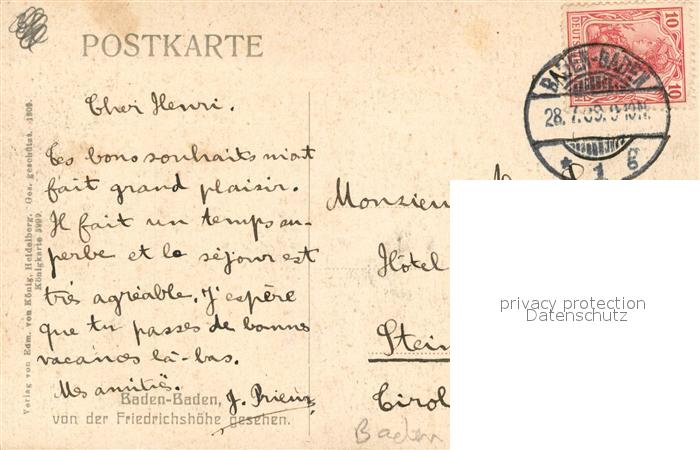 POSTKARTE
Cher Henri.
Tes bons souhaits m'ont
fait grand plaisir.
Il fait un temps su-
perbe et le séjour est
très agréable. J'espère
que tu passes de bonnes
vacances là-bas.
Mes amitiés.
J. Prieur
Baden-Baden,
von der Friedrichshöhe gesehen.
Verlag von Edm. von König, Heidelberg. Ges. geschützt. 1909.
Königkarte
10
10
BADEN-BADEN
28.7.09. 9-10N.
* 1 g
Monsieur
Hôtel
Stein
Tirol
Baden
privacy protection
Datenschutz